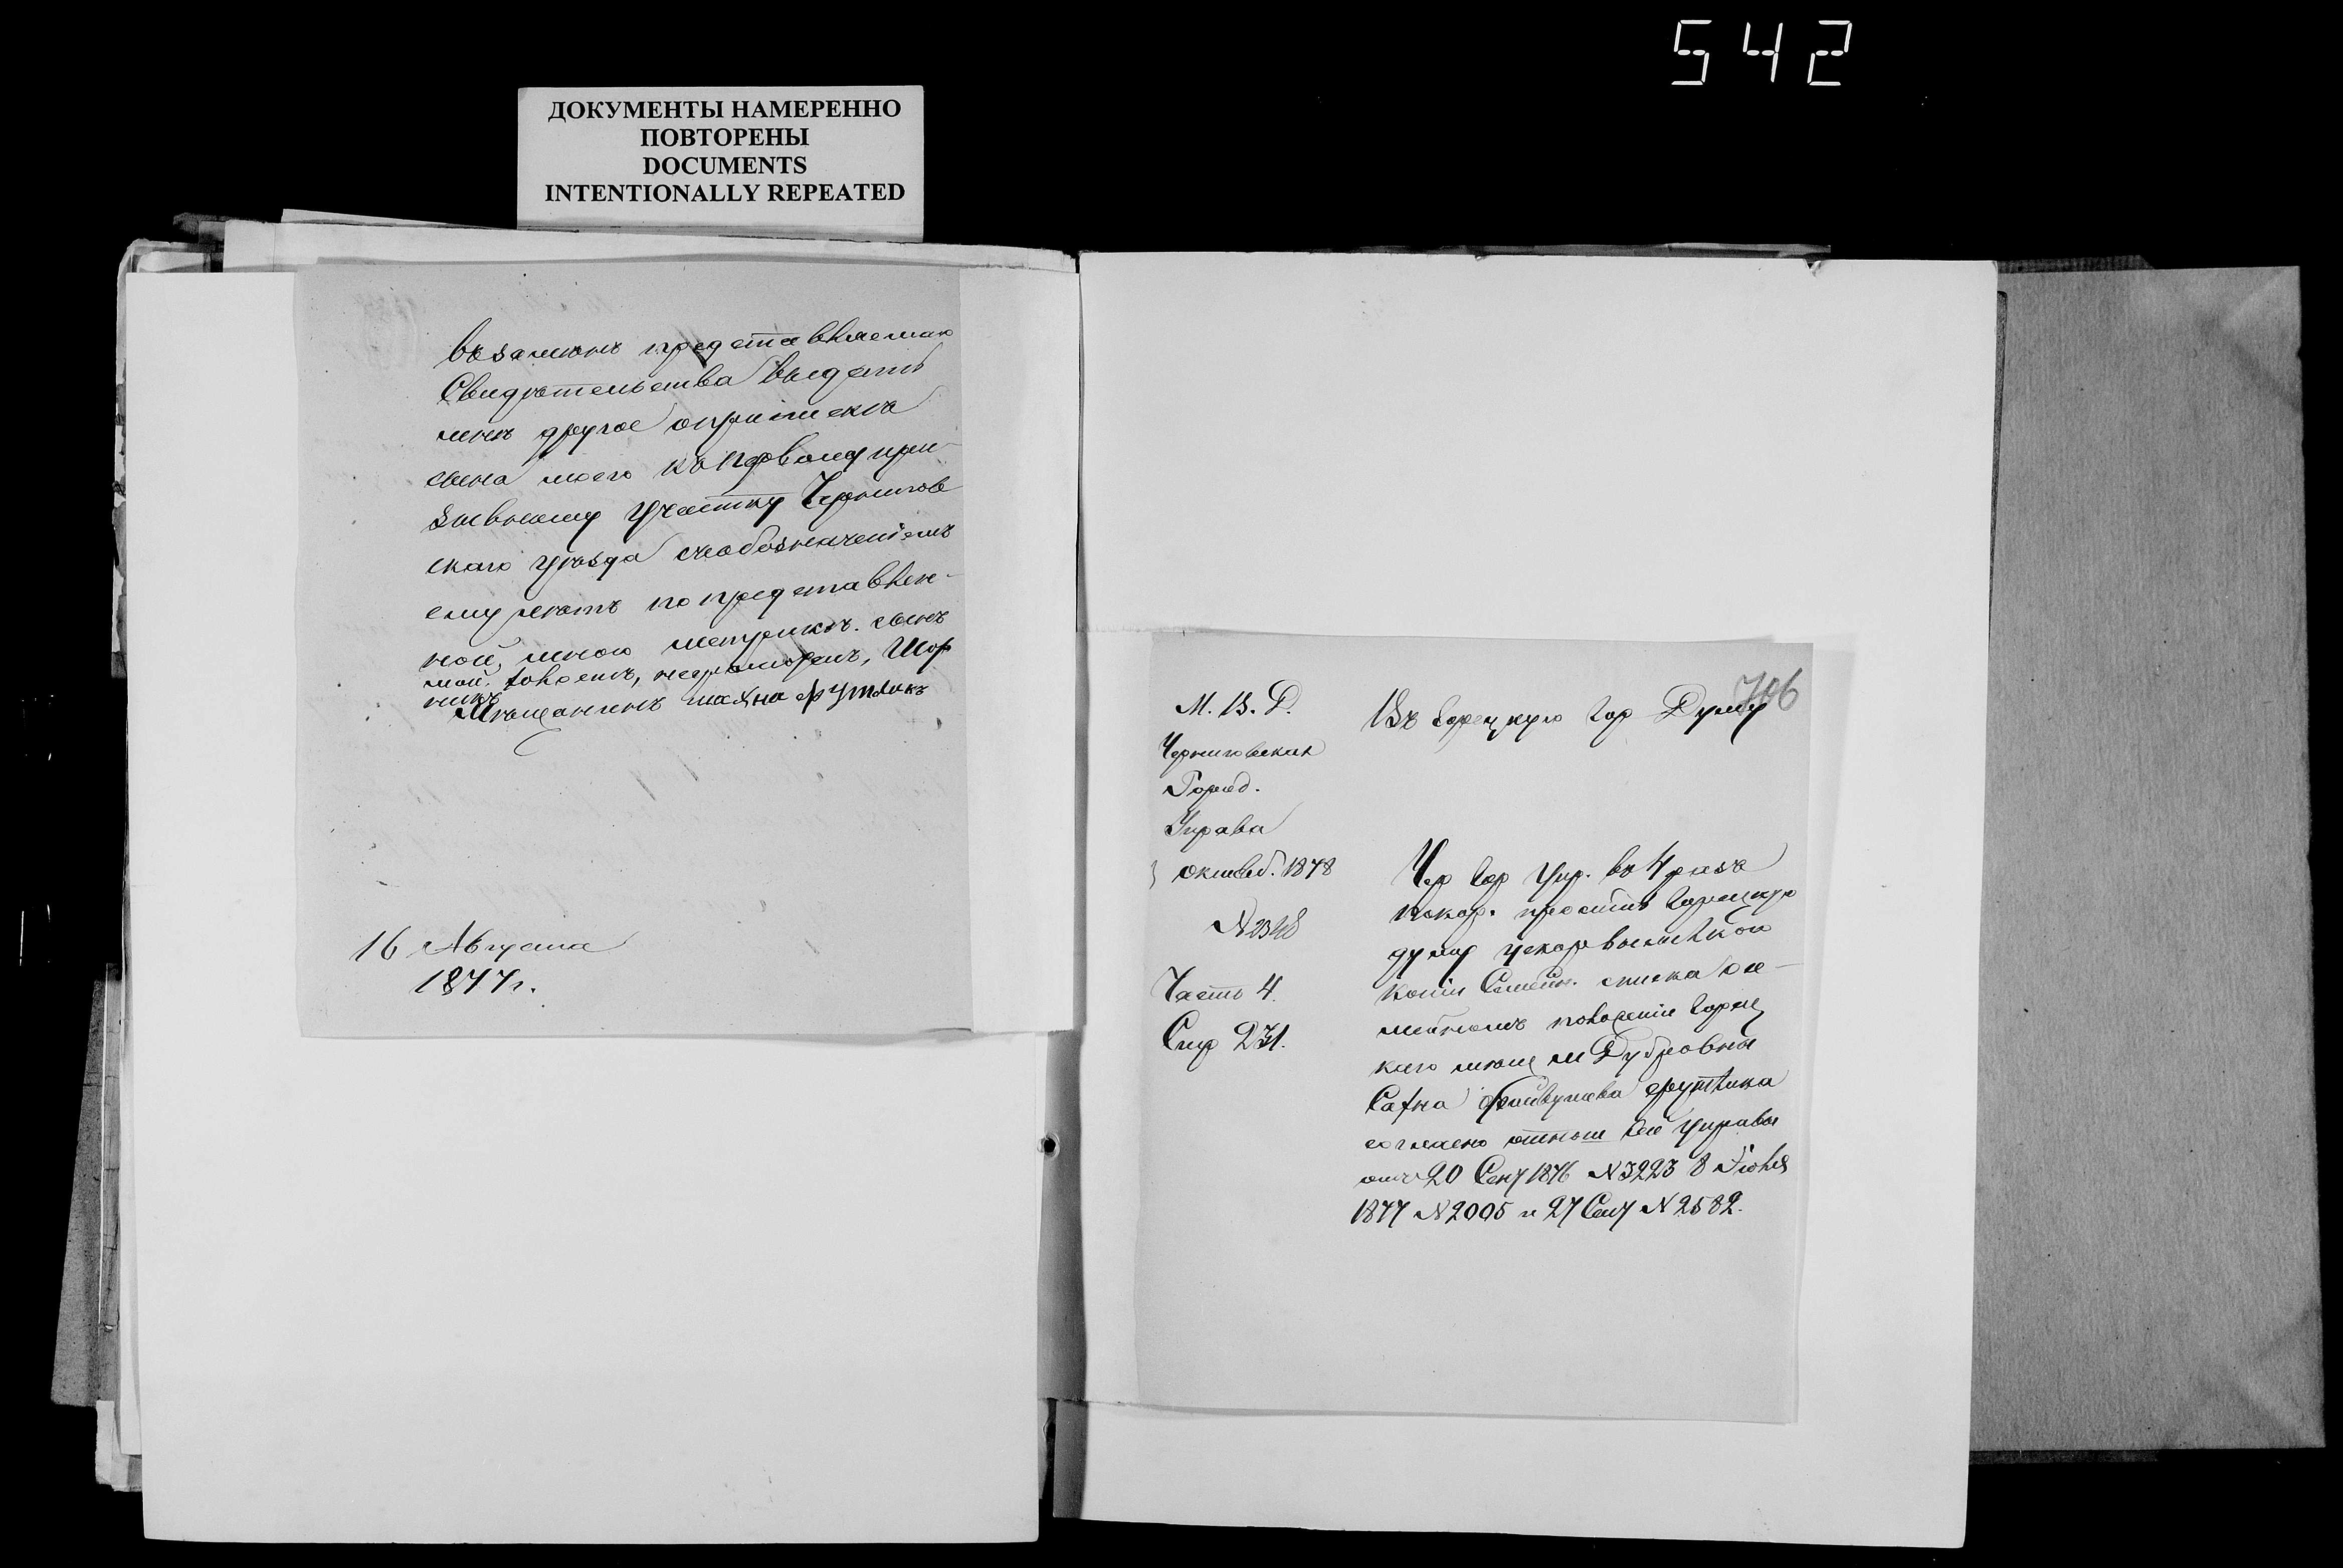 542
ДОКУМЕНТЫ НАМЕРЕННО
ПОВТОРЕНЫ
DOCUMENTS
INTENTIONALLY REPEATED
взаменъ представляемаго
Свидѣтельства выдать
мнѣ другое о припискѣ
сына моего къ первому при-
зывному участку Чернигов
скаго уѣзда съ обозначеніемъ
ему лѣтъ по представлен-
ной, мною метрикѣ. сынъ
мой неграмотенъ, Шор
никъ
Мѣщанинъ Фрутлинъ
16 Августа
1877 г.
706
М. В. Д.
Черниговская
Город.
Управа
октяб. 1878
Часть 4.
Стр 231.
Въ Горецкую Гор Думу
Чер Гор Упр. въ 4 разъ
покор. проситъ Горецкую
думу ускор высылкою
копіи Семейн. списка о се-
мейномъ положеніи Горец
каго мѣщ м Дубровны
согласно отнош сей управы
отъ 20 Сент 1876 N 3223 8 Іюля
1877 N 2005 и 27 Сент N 2582.